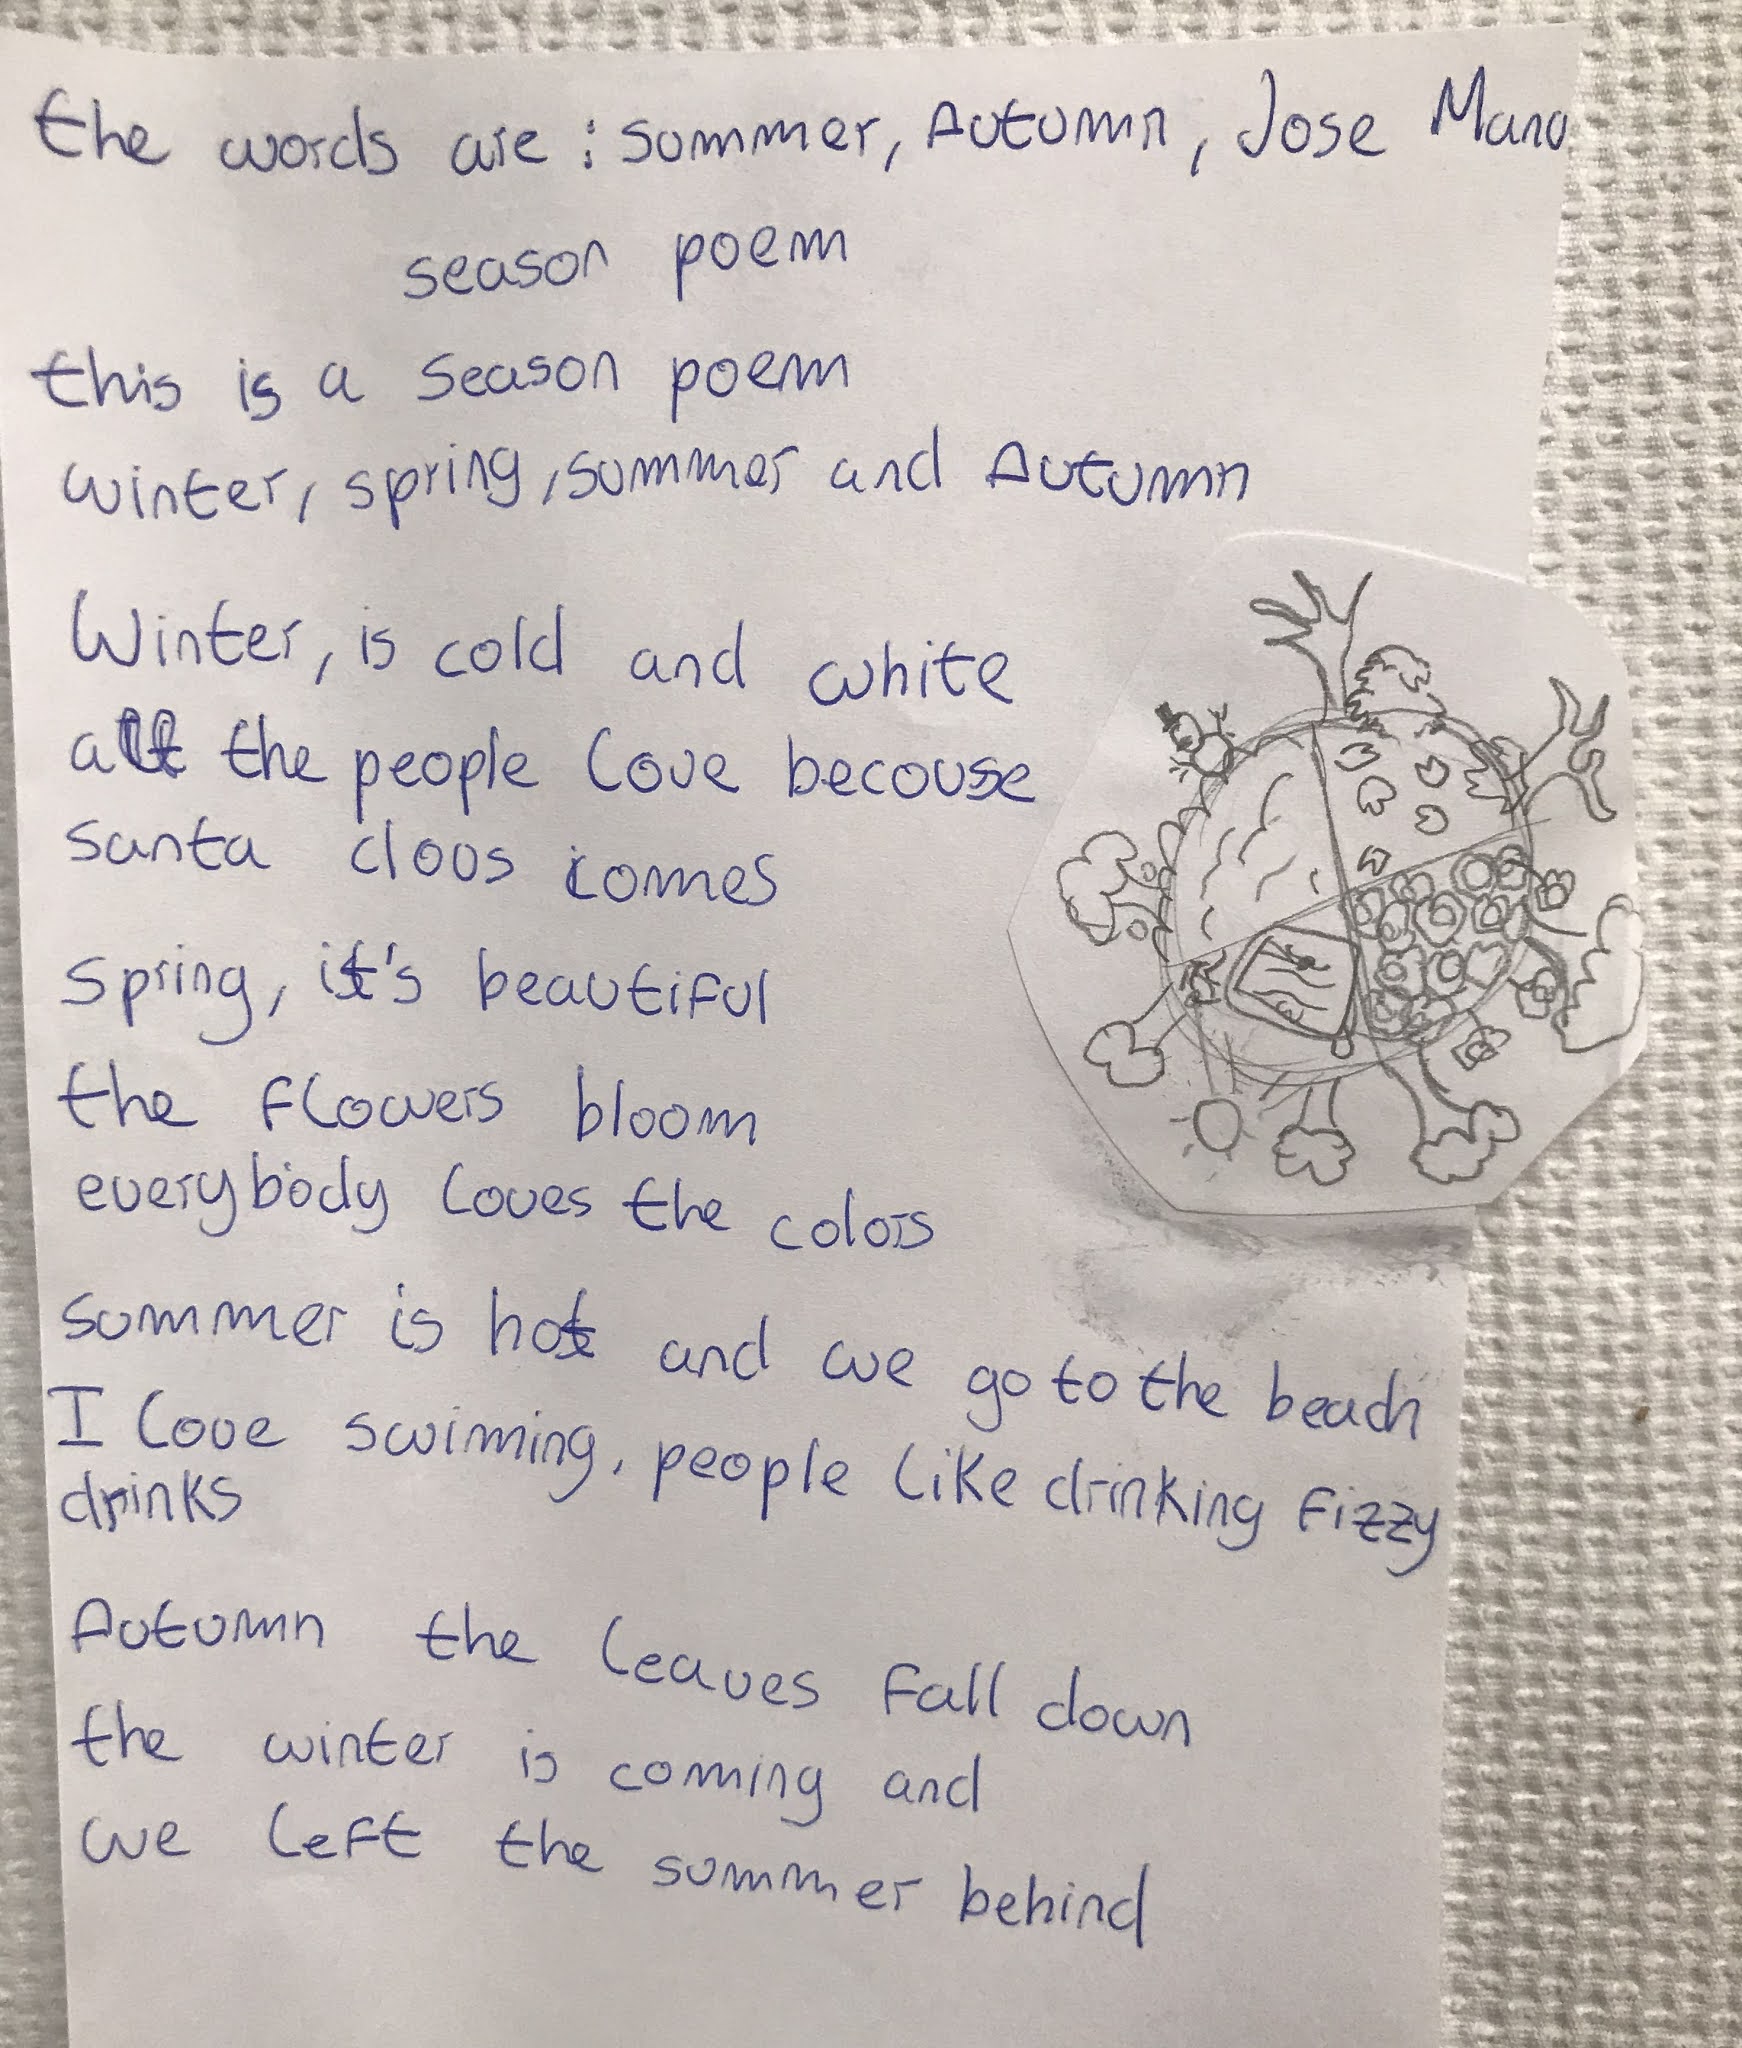 the words are: summer, Autumn, Jose Mano
season poem
this is a season poem
winter, spring, summer and Autumn
Winter, is cold and white
all the people love becouse
santa cloos comes
spring, it's beautiful
the flowers bloom
everybody loves the colors
summer is hot and we go to the beach
I love swiming, people like drinking fizzy
drinks
Autumn the leaves fall down
the winter is coming and
we left the summer behind